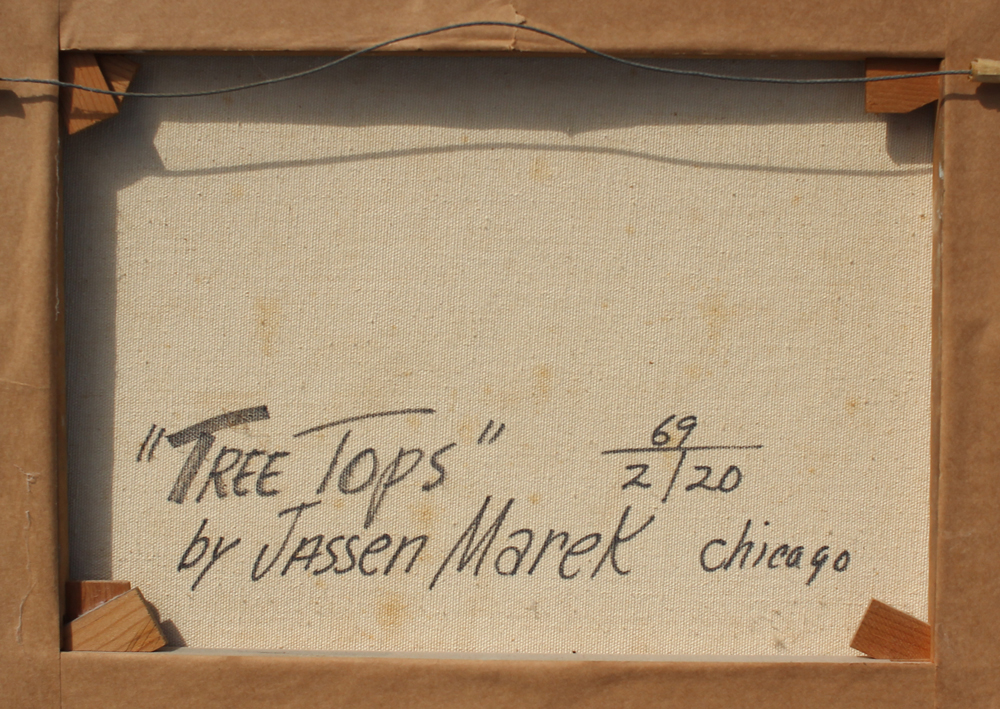 "Tree Tops" 69
2/20
by Jassen Marek chicago